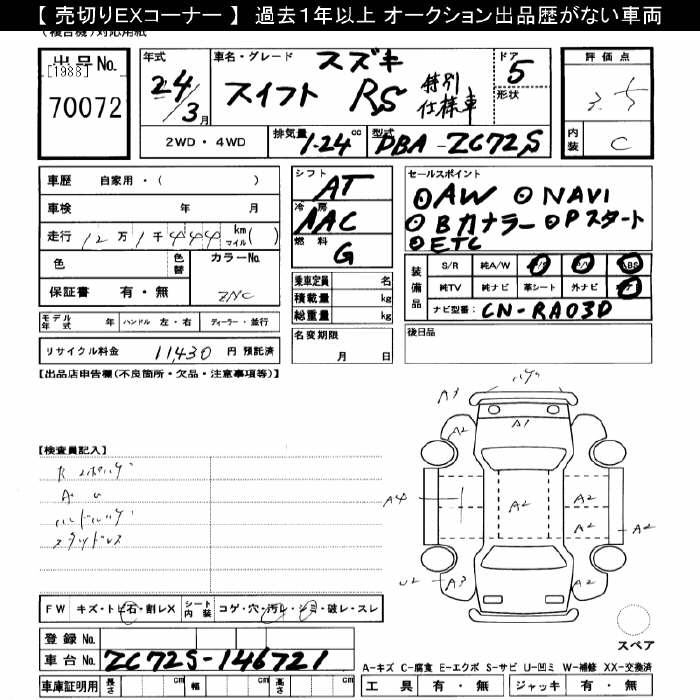 【 売切りEXコーナー 】 過去1年以上 オークション出品歴がない車両
(複合機)対応用紙
出品No. [1988] 70072
年式 24/3月
車名・グレード スズキ スイフト RS 特別仕様車
ドア 5
形状
評価点 3.5
内装 C
2WD・4WD
排気量 1.24 cc
型式 DBA-ZC72S
車歴 自家用・( )
車検 年 月
走行 12万1千444 km マイル( )
色
色替
カラーNo. ZNC
保証書 有・無
モデル年式 年 ハンドル 左・右 ディーラー・並行
リサイクル料金 11,430 円 預託済
シフト AT
冷房 AAC
燃料 G
乗車定員 名
積載量 kg
総重量 kg
名変期限 月 日
セールスポイント
◎AW ◎NAVI
◎Bカメラー ◎Pスタート
◎ETC
装備品 S/R 純A/W P/S P/W ABS
純TV 純ナビ 革シート 外ナビ
ナビ型番: CN-RA03D
後日品
【出品店申告欄(不良箇所・欠品・注意事項等)】
【検査員記入】
A U
ハンドルハゲ
スタッドレス
A3
ハゲ
A2
A1
A2
A4
A2
A2
A2
A2
U2
A3
A2
FW キズ・トビ石・割レX
シート内装 コゲ・穴・汚レ・シミ・破レ・スレ
登録No.
車台No. ZC72S-146721
車庫証明用 長さ 幅 高さ
スペア
A-キズ C-腐食 E-エクボ S-サビ U-凹ミ W-補修 XX-交換済
工具 有・無 ジャッキ 有・無